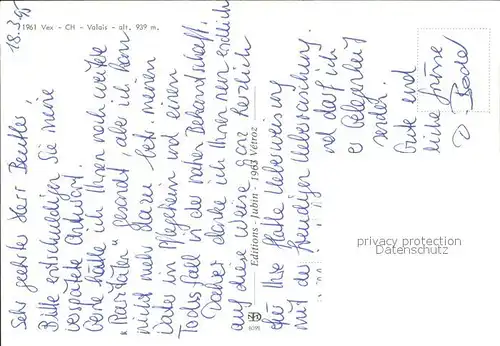 1961 Vex - CH - Valais - alt. 939 m.
18.3.95
Sehr geehrter Herr Beutler,
Bitte entschuldigen Sie meine
verspätete Antwort.
Gerne hätte ich Ihnen noch weitere
"Raritäten" gesandt, aber ich kam
nicht mehr dazu. Lebt meinen
Vater im Pflegeheim und einen
Todesfall in der nahen Bekanntschaft.
Daher danke ich Ihnen nun endlich
auf diese Weise ganz herzlich
für Ihre Überweisung
mit der freudigen Ueberraschung.
und darf ich
es gelegentlich
senden.
Gute und
liebe Grüsse
Editions Jubin - 1963 Vétroz
8095
privacy protection
Datenschutz